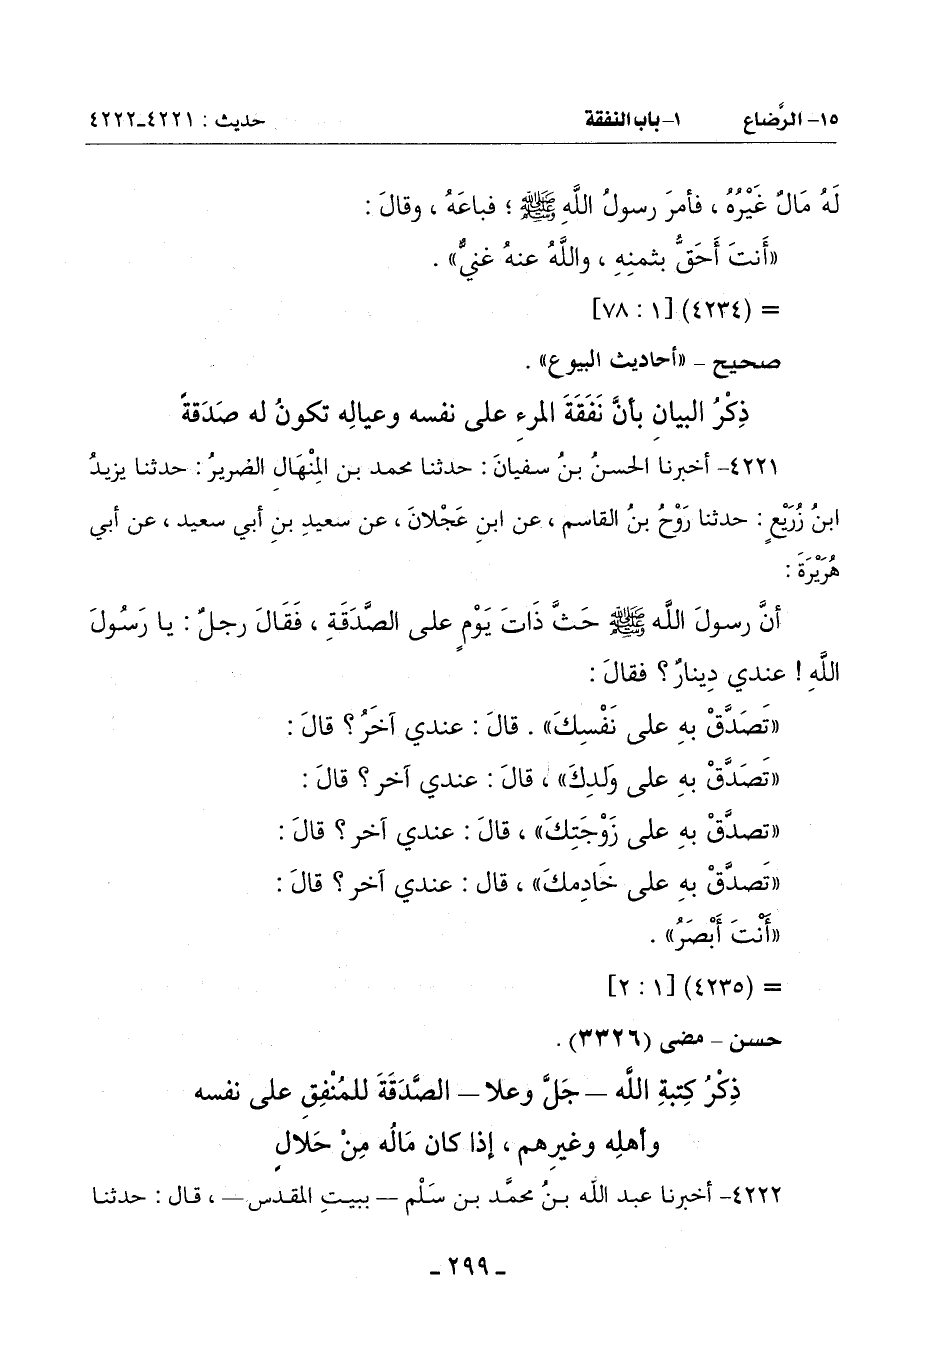 ١٥- الرَّضاع ١- باب النفقة حديث : ٤٢٢١-٤٢٢٢
لَهُ مَالٌ غَيْرُهُ ، فأمرَ رسولُ اللَّهِ ﷺ ؛ فباعَهُ ، وقالَ :
«أَنتَ أَحَقُّ بثمنِهِ ، واللَّهُ عنهُ غنيٌّ» .
= (٤٢٣٤) [١ : ٧٨]
صحيح - «أحاديث البيوع» .
ذِكْرُ البيان بأنَّ نَفَقَةَ المرءِ على نفسه وعيالِه تكونُ له صَدَقةً
٤٢٢١- أخبرنا الحسنُ بنُ سفيانَ : حدثنا محمد بن المِنْهَال الضريرُ : حدثنا يزيدُ
ابنُ زُرَيْعٍ : حدثنا رَوْحُ بنُ القاسم ، عن ابنِ عَجْلانَ ، عن سعيدِ بنِ أبي سعيد ، عن أبي
هُرَيْرَةَ :
أنَّ رسولَ اللَّه ﷺ حَثَّ ذَاتَ يَوْمٍ على الصَّدَقَةِ ، فَقَالَ رجلٌ : يا رَسُولَ
اللَّهِ ! عندي دِينارٌ ؟ فقالَ :
«تَصَدَّقْ به على نَفْسِكَ» . قالَ : عندي آخَرُ ؟ قالَ :
«تَصَدَّقْ به على وَلدِكَ» ، قالَ : عندي آخر ؟ قالَ :
«تصدَّقْ به على زَوْجَتِكَ» ، قالَ : عندي آخر ؟ قالَ :
«تَصدَّقْ به على خَادِمكَ» ، قال : عندي آخر ؟ قالَ :
«أَنْتَ أَبْصَرُ» .
= (٤٢٣٥) [١ : ٢]
حسن - مضى (٣٣٢٦) .
ذِكْرُ كِتبةِ اللَّه – جَلَّ وعلا – الصَّدَقَةَ للمُنْفِقِ على نفسه
وأهلِه وغيرِهم ، إذا كان مَالُه مِنْ حَلالٍ
٤٢٢٢- أخبرنا عبد اللَّه بنُ محمَّد بن سَلْم – ببيتِ المقدس – ، قال : حدثنا
- ٢٩٩ -